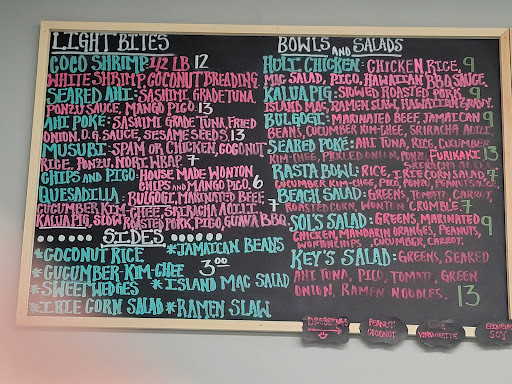 LIGHT BITES
COCO SHRIMP: 1/2 LB 12
WHITE SHRIMP, COCONUT BREADING.
SEARED AHI: SASHIMI GRADE TUNA,
PONZU SAUCE, MANGO PICO. 13
AHI POKE: SASHIMI GRADE TUNA, FRIED
ONION, O.G. SAUCE, SESAME SEEDS. 13
MUSUBI: SPAM OR CHICKEN, COCONUT
RICE, PONZU, NORI WRAP. 7
CHIPS AND PICO: HOUSE MADE WONTON
CHIPS AND MANGO PICO. 6
QUESADILLA: BULGOGI, MARINATED BEEF, 7
CUCUMBER KIM-CHEE, SRIRACHA AIOLI. OR
KALUA PIG, SLOW ROASTED PORK, PICO, GUAVA BBQ.
SIDES
*COCONUT RICE *JAMAICAN BEANS
*CUCUMBER KIM-CHEE 3.00
*SWEET WEDGES *ISLAND MAC SALAD
*IRIE CORN SALAD *RAMEN SLAW
BOWLS AND SALADS
HULI CHICKEN: CHICKEN, RICE, 9
MAC SALAD, PICO, HAWAIIAN BBQ SAUCE.
KALUA PIG: SLOW ROASTED PORK 9
ISLAND MAC, RAMEN SLAW, HAWAIIAN GRAVY.
BULGOGI: MARINATED BEEF, JAMAICAN 9
BEANS, CUCUMBER KIM-CHEE, SRIRACHA AIOLI.
SEARED POKE: AHI TUNA, RICE, CUCUMBER
KIM-CHEE, PICKLED ONION, PONZU, FURIKAKE 13
SRIRACHA AIOLI
RASTA BOWL: RICE, IRIE CORN SALAD, 7
CUCUMBER KIM-CHEE, PICO, PEANUT SAUCE.
BEACH SALAD: GREENS, TOMATO, CARROT,
ROASTED CORN, WONTON CRUMBLE. 7
SOL'S SALAD: GREENS, MARINATED 9
CHICKEN, MANDARIN ORANGES, PEANUTS,
WONTON CHIPS, CUCUMBER, CARROT.
KEY'S SALAD: GREENS, SEARED
AHI TUNA, PICO, TOMATO, GREEN
ONION, RAMEN NOODLES. 13
DRESSINGS
PEANUT
COCONUT
VINAIGRETTE
SOY